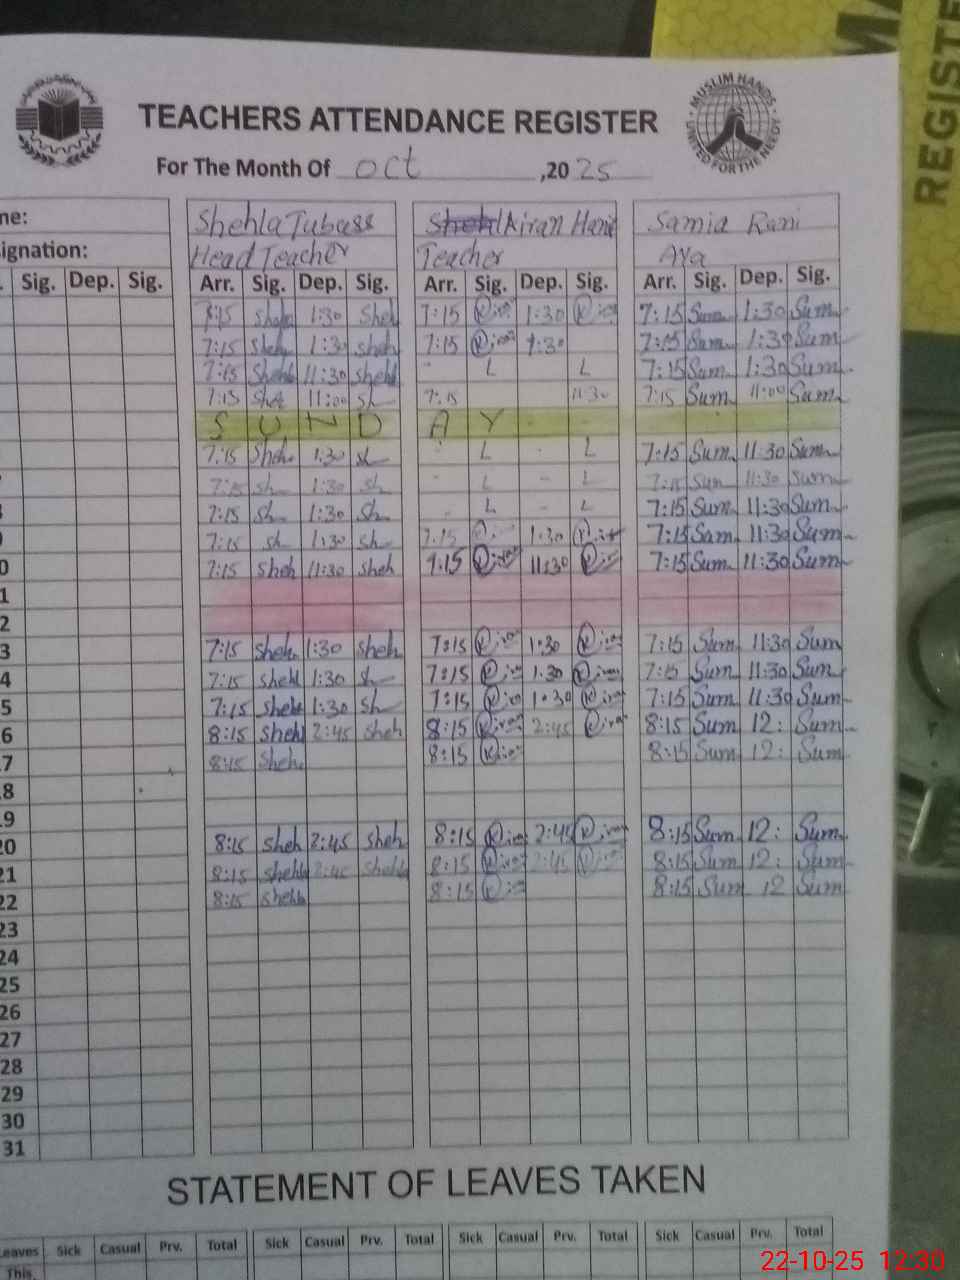 MUSLIM HANDS
UNITED FOR THE NEEDY
REGISTE
TEACHERS ATTENDANCE REGISTER
For The Month Of oct ,20 25
me: Shehla Tubass Kiran Hanif Samia Rani
ignation: Head Teacher Teacher Aya
. Sig. Dep. Sig. Arr. Sig. Dep. Sig. Arr. Sig. Dep. Sig. Arr. Sig. Dep. Sig.
7:15 sheh 1:30 Sheh 7:15 Kiran 1:30 Kiran 7:15 Sum 1:30 Sum
7:15 sheh 1:30 sheh 7:15 Kiran 1:30 7:15 Sum 1:30 Sum
7:15 Sheh 11:30 sheh - L L 7:15 Sum 1:30 Sum
7:15 She 11:00 sh 7:15 11:30 7:15 Sum 11:00 Sum
S U N D A Y - -
7:15 Sheh 1:30 sh - L - L 7:15 Sum 11:30 Sum
7:15 sh 1:30 sh - L - L 7:15 Sum 11:30 Sum
7:15 sh 1:30 sh - L - L 7:15 Sum 11:30 Sum
7:15 sh 1:30 sh 7:15 1:30 Kiran 7:15 Sam 11:30 Sum
0 7:15 sheh 11:30 sheh 7:15 Kiran 11:30 Kiran 7:15 Sum 11:30 Sum
1
2
3 7:15 sheh 1:30 sheh 7:15 Kiran 1:30 Kiran 7:15 Sum 11:30 Sum
4 7:15 shehl 1:30 sh 7:15 Kiran 1:30 Kiran 7:15 Sum 11:30 Sum
5 7:15 shehl 1:30 sh 7:15 Kiran 1:30 Kiran 7:15 Sum 11:30 Sum
6 8:15 shehl 2:45 sheh 8:15 Kiran 2:45 Kiran 8:15 Sum 12: Sum
7 8:15 Sheh 8:15 Kiran 8:15 Sum 12: Sum
18
19
20 8:15 sheh 2:45 sheh 8:15 Kiran 2:45 Kiran 8:15 Sum 12: Sum
21 8:15 shehla 2:45 shehla 8:15 Kiran 2:45 Kiran 8:15 Sum 12: Sum
22 8:15 shehla 8:15 Kiran 8:15 Sum 12 Sum
23
24
25
26
27
28
29
30
31
STATEMENT OF LEAVES TAKEN
Leaves Sick Casual Prv. Total Sick Casual Prv. Total Sick Casual Prv. Total Sick Casual Prv. Total
This
22-10-25 12:30